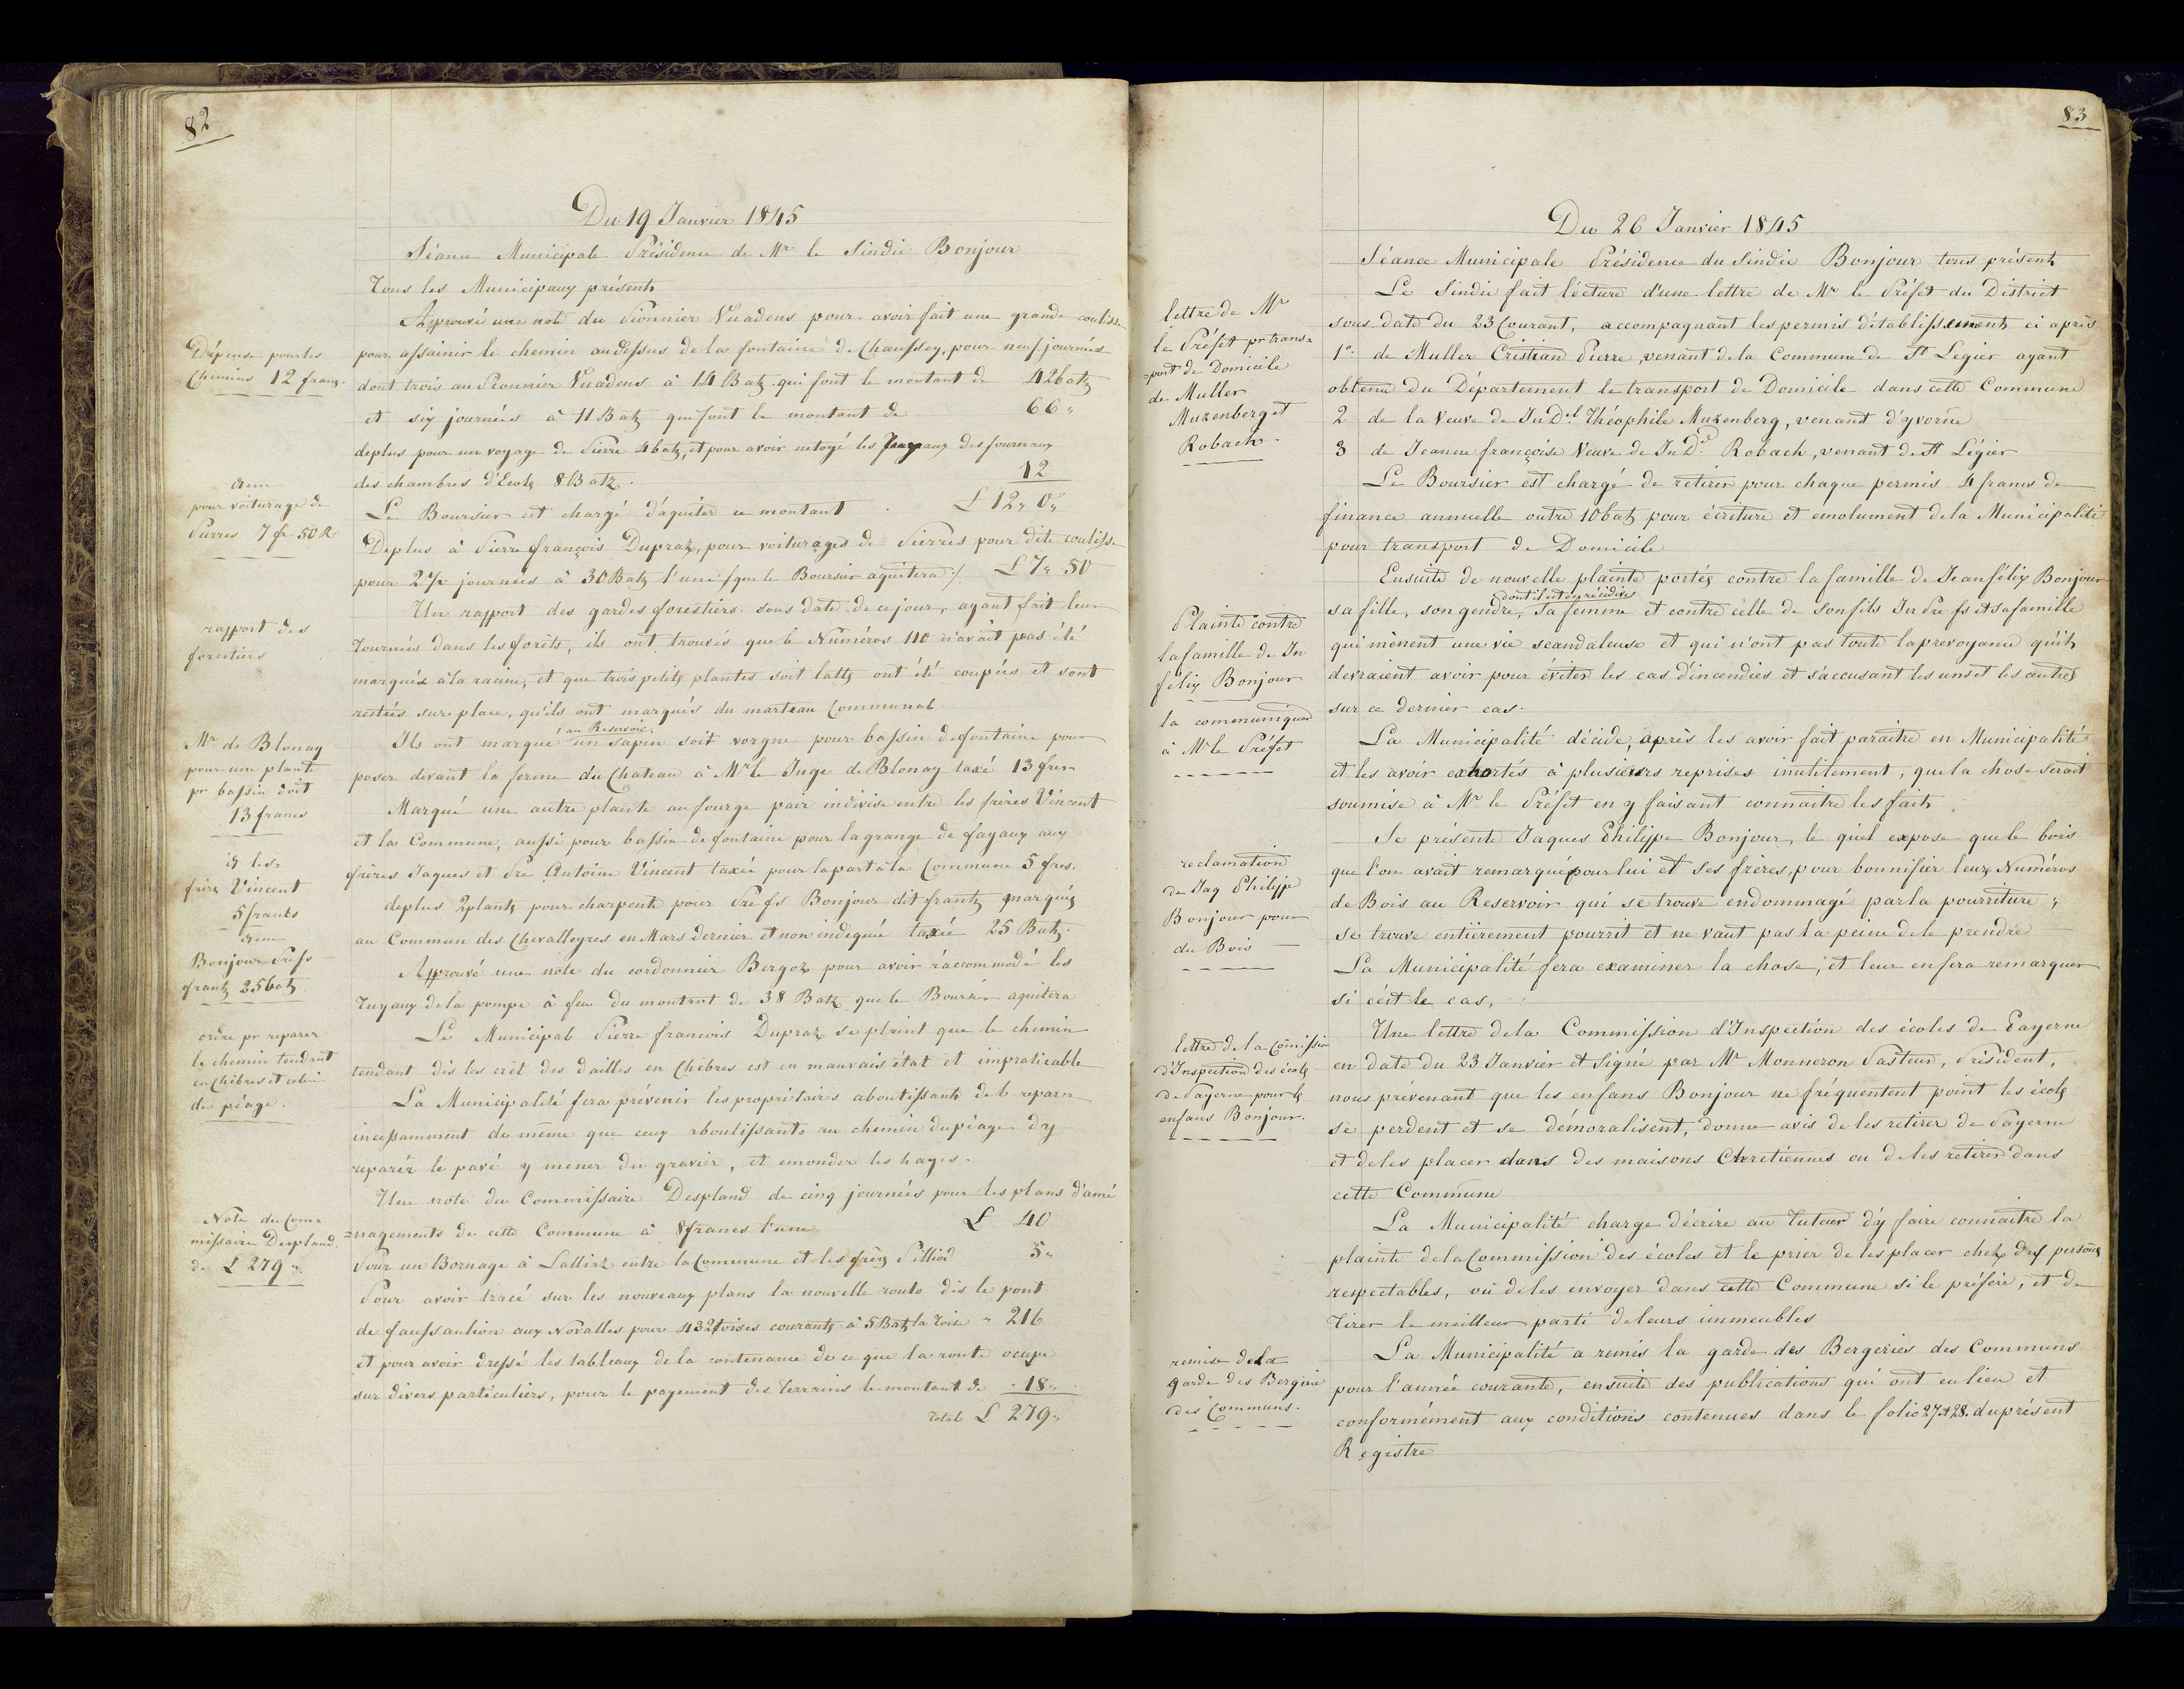 82
Du 19 Janvier 1845
Séance Municipale Présidence de Mr le Sindic Bonjour
Tous les Municipaux présents
Approuvé une note du Pionnier Vuadens pour avoir fait une grande coulisse
Dépense pour les
chemins 12 francs.
pour assainir le chemin audessus de la fontaine de Chaussey, pour neuf journées
dont trois au Pionnier Vuadens à 14 Batz qui font le montant de 42 batz
et six journées à 11 Batz qui font le montant de 66 "
deplus pour un voyage de Pierre 4 batz, et pour avoir netoyé les tuyaux des fournaux
des chambres d'Ecole 8 Batz. 12
idem
pour voiturage de
Pierres 7 fr 50 R
Le Boursier est chargé d'aquiter ce montant L 12 " 0 "
Deplus à Pierre françois Dupraz, pour voiturages de Pierres pour dite coulisse
pour 2 1/2 journées à 30 Batz l'une (que le Boursier aquitera :/. L 7 " 50
Un rapport des gardes forestiers sous date de ce jour, ayant fait leur
rapport des
forestiers
Tournées dans les forêts, ils ont trouvés que le Numéros 110 n'avait pas été
marquéz à la racine, et que trois petits plantes soit latts ont été coupées et sont
restées sur place, qu'ils ont marqués du marteau Communal.
au Reservoir.
Mr de Blonay
pour une plante
pr bassin doit
13 francs
Ils ont marqué un sapin soit vorgne pour bassin de fontaine pour
poser devant la ferme du Chateau à Mr le Juge de Blonay taxé 13 frcs
Marqué une autre plante au fourge pair indivise entre les frères Vincent
et la Commune, aussi pour bassin de fontaine pour la grange de fayaux aux
id les
frère Vincent
5 franks
frères Jaques et Pre Antoine Vincent taxée pour la part à la Commune 5 frcs.
deplus 2 plants pour charpente pour Pre fs Bonjour dit frantz marqués
idem
Bonjour Prefs
frantz 25 batz
au Commun des Chevalleyres en Mars dernier et non indiquée taxée 25 Batz.
Approuvé une note du cordonnier Bergoz pour avoir raccommodé les
Tuyaux de la pompe à feu du montant de 38 Batz que le Boursier aquitera
ordre pr reparer
le chemin tendant
en Chèbres et celui
du péage.
Le Municipal Pierre francois Dupraz se plaint que le chemin
tendant dès les crêt des dailles en Chèbres est en mauvais état et impraticable
La Municipalité fera prévenir les propriétaires aboutissants de le reparer
incessamment de même que ceux aboutissants au chemin du péage d'y
reparér le pavé y mener du gravier, et emonder les hayes.
Une note du Commissaire Despland de cinq journées pour les plans d'amé
Note du Com=
missaire Despland.
de L 279 ".
=nagements de cette Commune à 8 francs l'une L 40
Pour un Bornage à Lalliaz entre la Commune et les frères Pilliod 5 "
Pour avoir tracé sur les nouveaux plans la nouvelle route dès le pont
de faussaulion aux Novalles pour 432 toises courants à 5 Batz la toise " 216
et pour avoir dressé les tableaux de la contenance de ce que la route ocupe
sur divers particuliers, pour le payement des terrains le montant de 18 "
Total L 279 "
83
Du 26 Janvier 1845
Séance Municipale Présidence du Sindic Bonjour tous présents
Le Sindic fait lécture d'une lettre de Mr le Préfet du District
lettre de Mr
le Préfet pr trans=
=port de Domicile
de Muller
Muzenberg et
Robach.
sous date du 23 Courant, accompagnant les permis d'établissements ci après
1o. de Muller Cristian Pierre, venant de la Commune de St Legier ayant
obtenu du Département le transport de Domicile dans cette Commune
2 de la Veuve de Jn Del Théophile Muzenberg, venant d'yvorne
3 de Jeanne françoise Veuve de Jn Dd. Robach, venant de St Légier
Le Boursier est chargé de retirer pour chaque permis 4 francs de
finance annuelle outre 10 batz pour écriture et emolument de la Municipalité
pour transport de Domicile
Ensuite de nouvelle plainte portés contre la famille de Jean félix Bonjour
dont il est en récidive
Plainte contre
la famille de Jn
félix Bonjour
la communiquer
à Mr le Préfet
sa fille, son gendre, Sa femme et contre celle de Son fils Jn Pre fs et sa famille
qui mènent une vie scandaleuse et qui n'ont pas toute la prevoyance qu'ils
devraient avoir pour éviter les cas d'incendies et s'accusant les uns et les autres
sur ce dernier cas.
La Municipalité décide, après les avoir fait paraitre en Municipalité
et les avoir exhortés à plusieurs reprises inutilement, que la chose serait
soumise à Mr le Préfet en y faisant connaitre les faits
Se présente Jaques Philippe Bonjour, le quel expose que le bois
reclamation
de Jaq Philippe
Bonjour pour
du Bois
que l'on avait remarqué pour lui et ses frères, pour bonnifier leurs Numéros
de Bois au Reservoir qui se trouve endommagé par la pourriture,
se trouve entièrement pourrit et ne vaut pas la peine de le prendre
La Municipalité fera examiner la chose, et leur en fera remarquer
si c'est le cas,
Une lettre de la Commission d'Inspection des écoles de Payerne
lettre de la Comission
d'Inspection des écoles
de Payerne pour ls
enfans Bonjour.
en date du 23 Janvier et Signé par Mr Monneron Pasteur, Président,
nous prévenant que les enfans Bonjour ne fréquentent point les écoles
se perdent et se démoralisent, donne avis de les retirer de Payerne
et de les placer dans des maisons Chretiennes ou de les retirer dans
cette Commune
La Municipalité charge d'écrire au Tuteur d'y faire connaitre la
plainte de la Commission des écoles et le prier de les placer chez des persones
respectables, où de les envoyer dans cette Commune si le préfére, et de
Tirer le meilleur parti de leurs immeubles
remise de la
garde des Bergerie
des Communs.
La Municipalité a remis la garde des Bergeries des Communs
pour l'année courante, ensuite des publications qui ont eu lieu et
conformément aux conditions contenues dans le folio 27 et 28. du présent
Registre